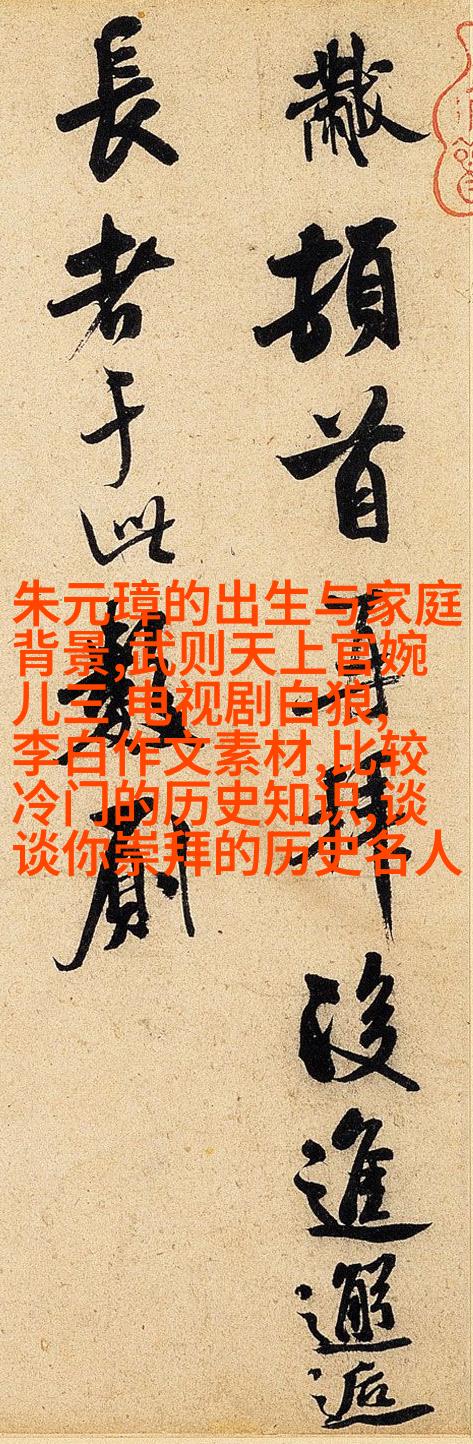 黻頓首再拜後進邂逅
長者于此數
朱元璋的出生与家庭
背景,武则天上官婉
儿三,电视剧白狼,
李白作文素材,比较
冷门的历史知识,谈
谈你崇拜的历史名人